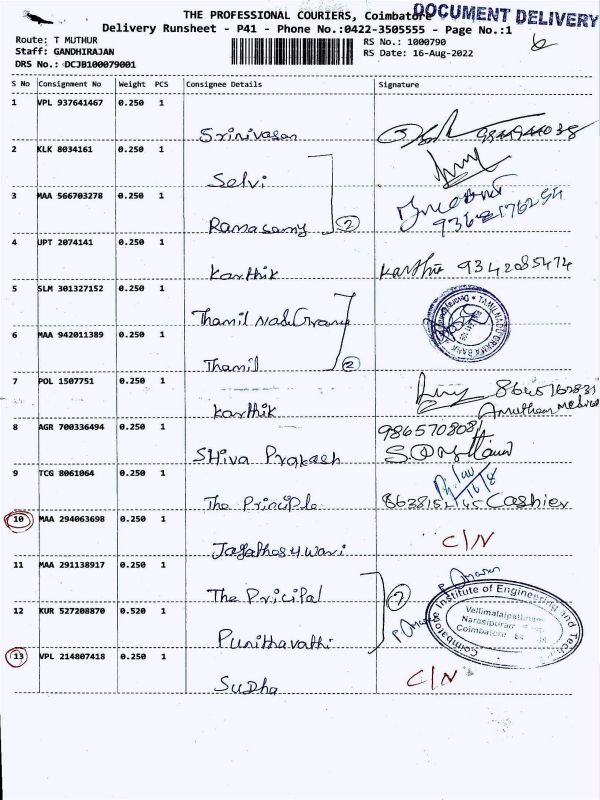 THE PROFESSIONAL COURIERS, Coimbatore
DOCUMENT DELIVERY
Delivery Runsheet - P41 - Phone No.:0422-3505555 - Page No.:1
Route: T MUTHUR
RS No.: 1000790
Staff: GANDHIRAJAN
RS Date: 16-Aug-2022
DRS No.: DCJB100079001
S No Consignment No Weight PCS Consignee Details Signature
1 VPL 937641467 0.250 1
Srinivasan
2 KLK 8034161 0.250 1
Selvi
3 MAA 566703278 0.250 1
Ramasamy 2
4 UPT 2074141 0.250 1
Karthik Karthik 9342085474
5 SLM 301327152 0.250 1
6 MAA 942011389 0.250 1
Thamil 2
7 POL 1507751 0.250 1
Karthik
8 AGR 700336494 0.250 1
SHiva Prakash
9 TCG 8061064 0.250 1
The Principle Cashier
10 MAA 294063698 0.250 1
Jagatheswari C/N
11 MAA 291138917 0.250 1
The Pricipal
12 KUR 527208870 0.520 1
Punithavathi
Coimbatore Institute of Engineering and
Vellimalaipattinam
Narasipuram
Coimbatore
13 VPL 214807418 0.250 1
Sudha C/N